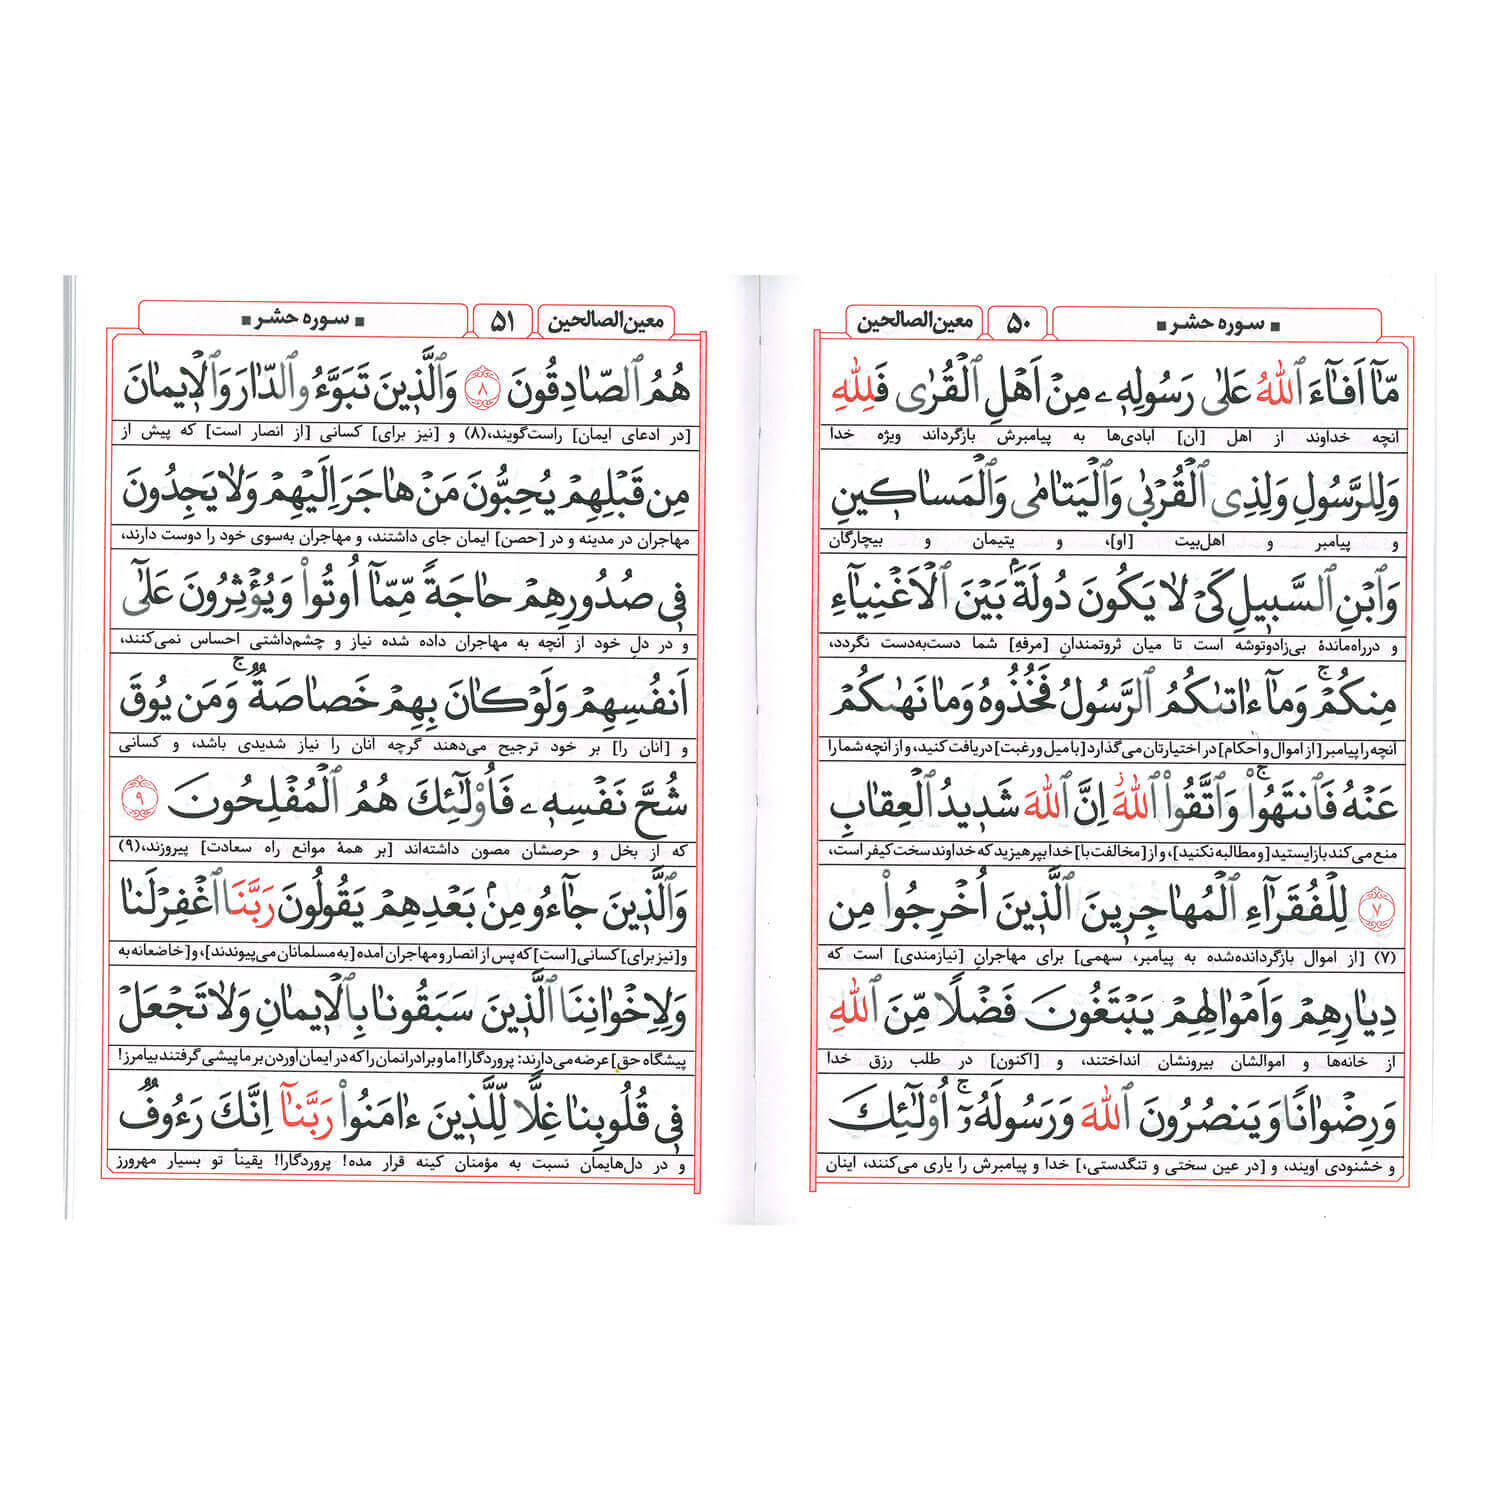 معین‌الصالحین ۵۰ سوره حشر
مّٰٓا اَفٰٓاءَ ٱللّٰهُ عَلٰى رَسُولِهٖ مِنْ اَهْلِ الْقُرٰى فَلِلّٰهِ
آنچه خداوند از اهل [آن] آبادی‌ها به پیامبرش بازگرداند ویژه خدا
وَلِلرَّسُولِ وَلِذِى الْقُرْبٰى وَالْيَتٰامٰى وَالْمَسٰاكٖينِ
و پیامبر و اهل‌بیت [او]، و یتیمان و بیچارگان
وَابْنِ السَّبٖيلِ كَىْ لٰا يَكُونَ دُولَةًۢ بَيْنَ الْاَغْنِيٰٓاءِ
و درراه‌ماندهٔ بی‌زادوتوشه است تا میان ثروتمندانِ [مرفهِ] شما دست‌به‌دست نگردد،
مِنْكُمْۚ وَمٰٓا ءٰاتٰىكُمُ الرَّسُولُ فَخُذُوهُ وَمٰا نَهٰىكُمْ
آنچه را پیامبر [از اموال و احکام] در اختیارتان می‌گذارد [با میل و رغبت] دریافت کنید، و از آنچه شما را
عَنْهُ فَانْتَهُواۚ وَاتَّقُوا اللّٰهَۖ اِنَّ اللّٰهَ شَدٖيدُ الْعِقٰابِ
منع می‌کند بازایستید [و مطالبه نکنید]، و از [مخالفت با] خدا بپرهیزید که خداوند سخت کیفر است،
۷ لِلْفُقَرٰٓاءِ الْمُهٰاجِرٖينَ الَّذٖينَ اُخْرِجُوا مِن
(۷) [از اموال بازگردانده‌شده به پیامبر، سهمی] برای مهاجرانِ [نیازمندی] است که
دِيٰارِهِمْ وَاَمْوٰالِهِمْ يَبْتَغُونَ فَضْلًا مِّنَ اللّٰهِ
از خانه‌ها و اموالشان بیرونشان انداختند، و [اکنون] در طلب رزق خدا
وَرِضْوٰانًا وَيَنصُرُونَ اللّٰهَ وَرَسُولَهُۚ اُولٰٓئِكَ
و خشنودی اویند، و [در عین سختی و تنگدستی،] خدا و پیامبرش را یاری می‌کنند، اینان
معین‌الصالحین ۵۱ سوره حشر
هُمُ الصّٰادِقُونَ ۸ وَالَّذٖينَ تَبَوَّءُو الدّٰارَ وَالْاٖيمٰانَ
[در ادعای ایمان] راست‌گویند،(۸) و [نیز برای] کسانی [از انصار است] که پیش از
مِن قَبْلِهِمْ يُحِبُّونَ مَنْ هٰاجَرَ اِلَيْهِمْ وَلٰا يَجِدُونَ
مهاجران در مدینه و در [حصن] ایمان جای داشتند، و مهاجران به‌سوی خود را دوست دارند،
فٖى صُدُورِهِمْ حٰاجَةً مِّمّٰٓا اُوتُوا وَيُؤْثِرُونَ عَلٰٓى
و در دلِ خود از آنچه به مهاجران داده شده نیاز و چشم‌داشتی احساس نمی‌کنند،
اَنفُسِهِمْ وَلَوْ كٰانَ بِهِمْ خَصٰاصَةٌۚ وَمَن يُوقَ
و [آنان را] بر خود ترجیح می‌دهند گرچه آنان را نیاز شدیدی باشد، و کسانی
شُحَّ نَفْسِهٖ فَاُولٰٓئِكَ هُمُ الْمُفْلِحُونَ ۹
که از بخل و حرصشان مصون داشته‌اند [بر همهٔ موانع راه سعادت] پیروزند،(۹)
وَالَّذٖينَ جٰٓاءُو مِنۢ بَعْدِهِمْ يَقُولُونَ رَبَّنَا اغْفِرْ لَنٰا
و [نیز برای] کسانی [است] که پس از انصار و مهاجران آمده [به مسلمانان می‌پیوندند]، و [خاضعانه به
وَلِاِخْوٰانِنَا الَّذٖينَ سَبَقُونٰا بِالْاٖيمٰانِ وَلٰا تَجْعَلْ
پیشگاه حق] عرضه می‌دارند: پروردگارا! ما و برادرانمان را که در ایمان آوردن بر ما پیشی گرفتند بیامرز!
فٖى قُلُوبِنٰا غِلًّا لِّلَّذٖينَ ءٰامَنُوا رَبَّنٰٓا اِنَّكَ رَءُوفٌ
و در دل‌هایمان نسبت به مؤمنان کینه قرار مده! پروردگارا! یقیناً تو بسیار مهرورز